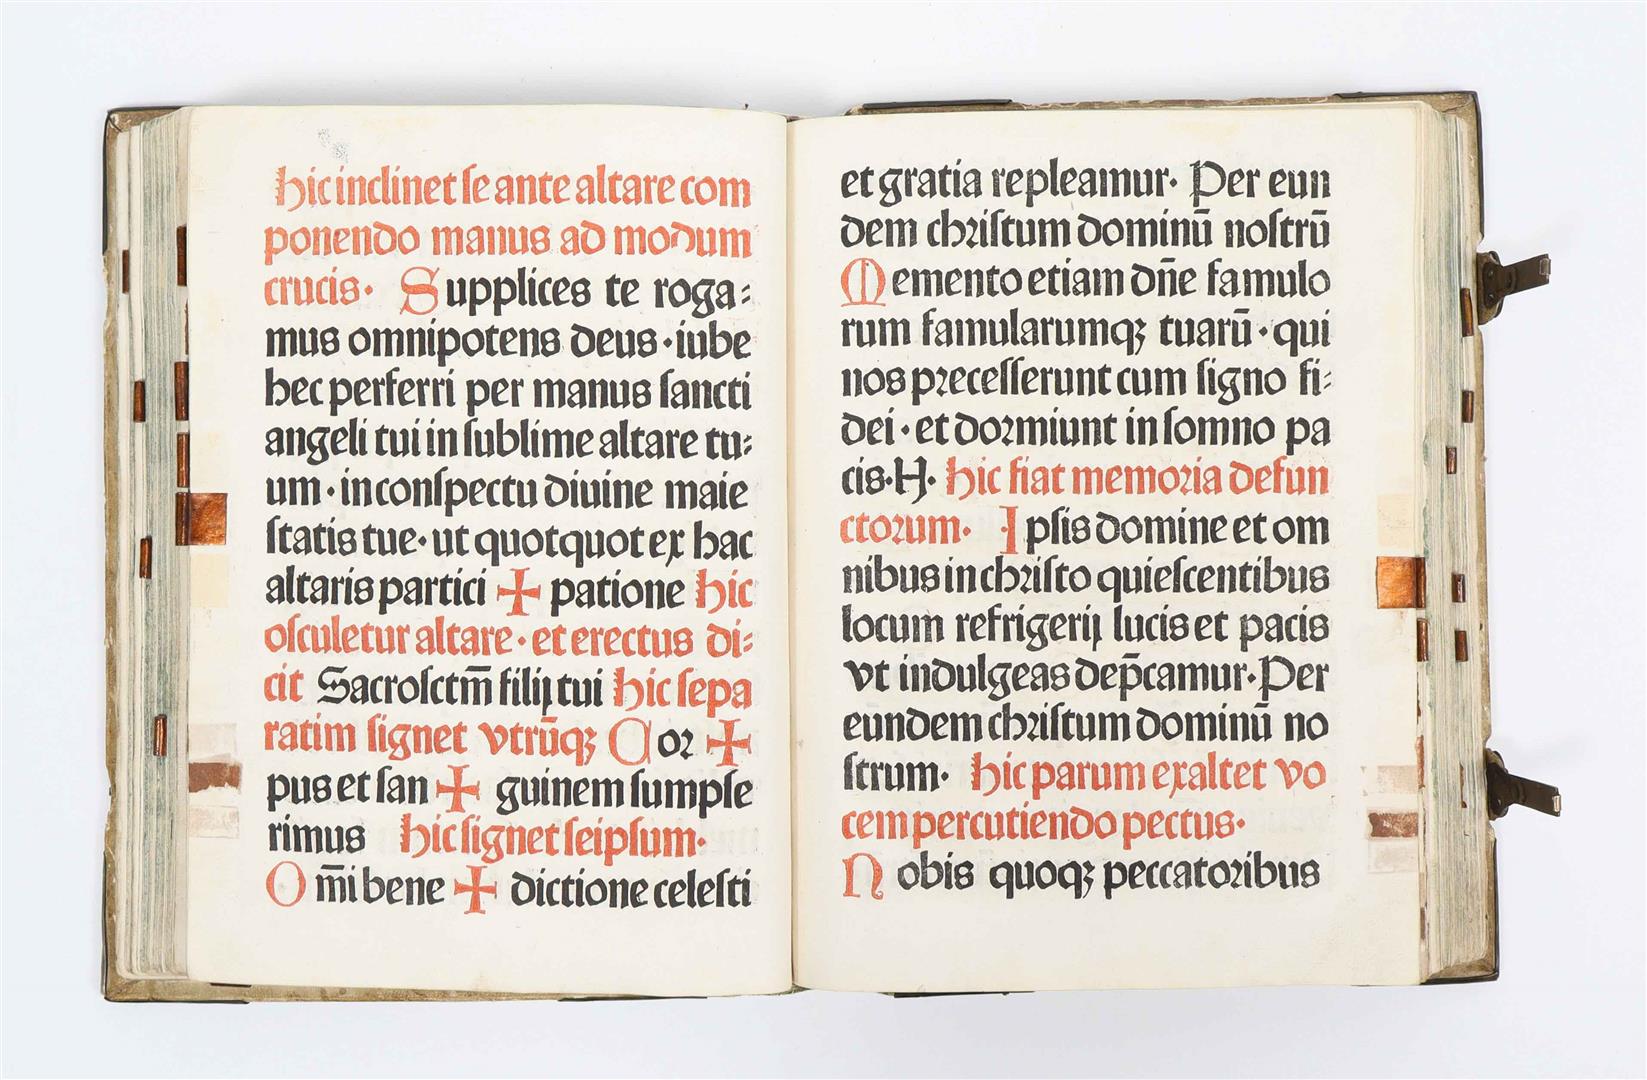 hic inclinet se ante altare com
ponendo manus ad modum
crucis· Supplices te roga⸗
mus omnipotens deus·iube
hec perferri per manus sancti
angeli tui in sublime altare tu⸗
um·in conspectu diuine maie
statis tue·ut quotquot ex hac
altaris partici ✠ patione hic
osculetur altare·et erectus di⸗
cit Sacrosctm̄ filij tui hic sepa
ratim signet vtrūqꝫ Cor ✠
pus et san ✠ guinem sumpse
rimus hic signet seipsum·
Om̄i bene ✠ dictione celesti
et gratia repleamur· Per eun
dem christum dominū nostrū
Memento etiam dn̄e famulo
rum famularumqꝫ tuarū·qui
nos precesserunt cum signo fi⸗
dei·et dormiunt in somno pa
cis·N· hic fiat memoria defun
ctorum· Ipsis domine et om
nibus in christo quiescentibus
locum refrigerij lucis et pacis
vt indulgeas dep̄camur·Per
eundem christum dominū no
strum· hic parum exaltet vo
cem percutiendo pectus·
Nobis quoqꝫ peccatoribus